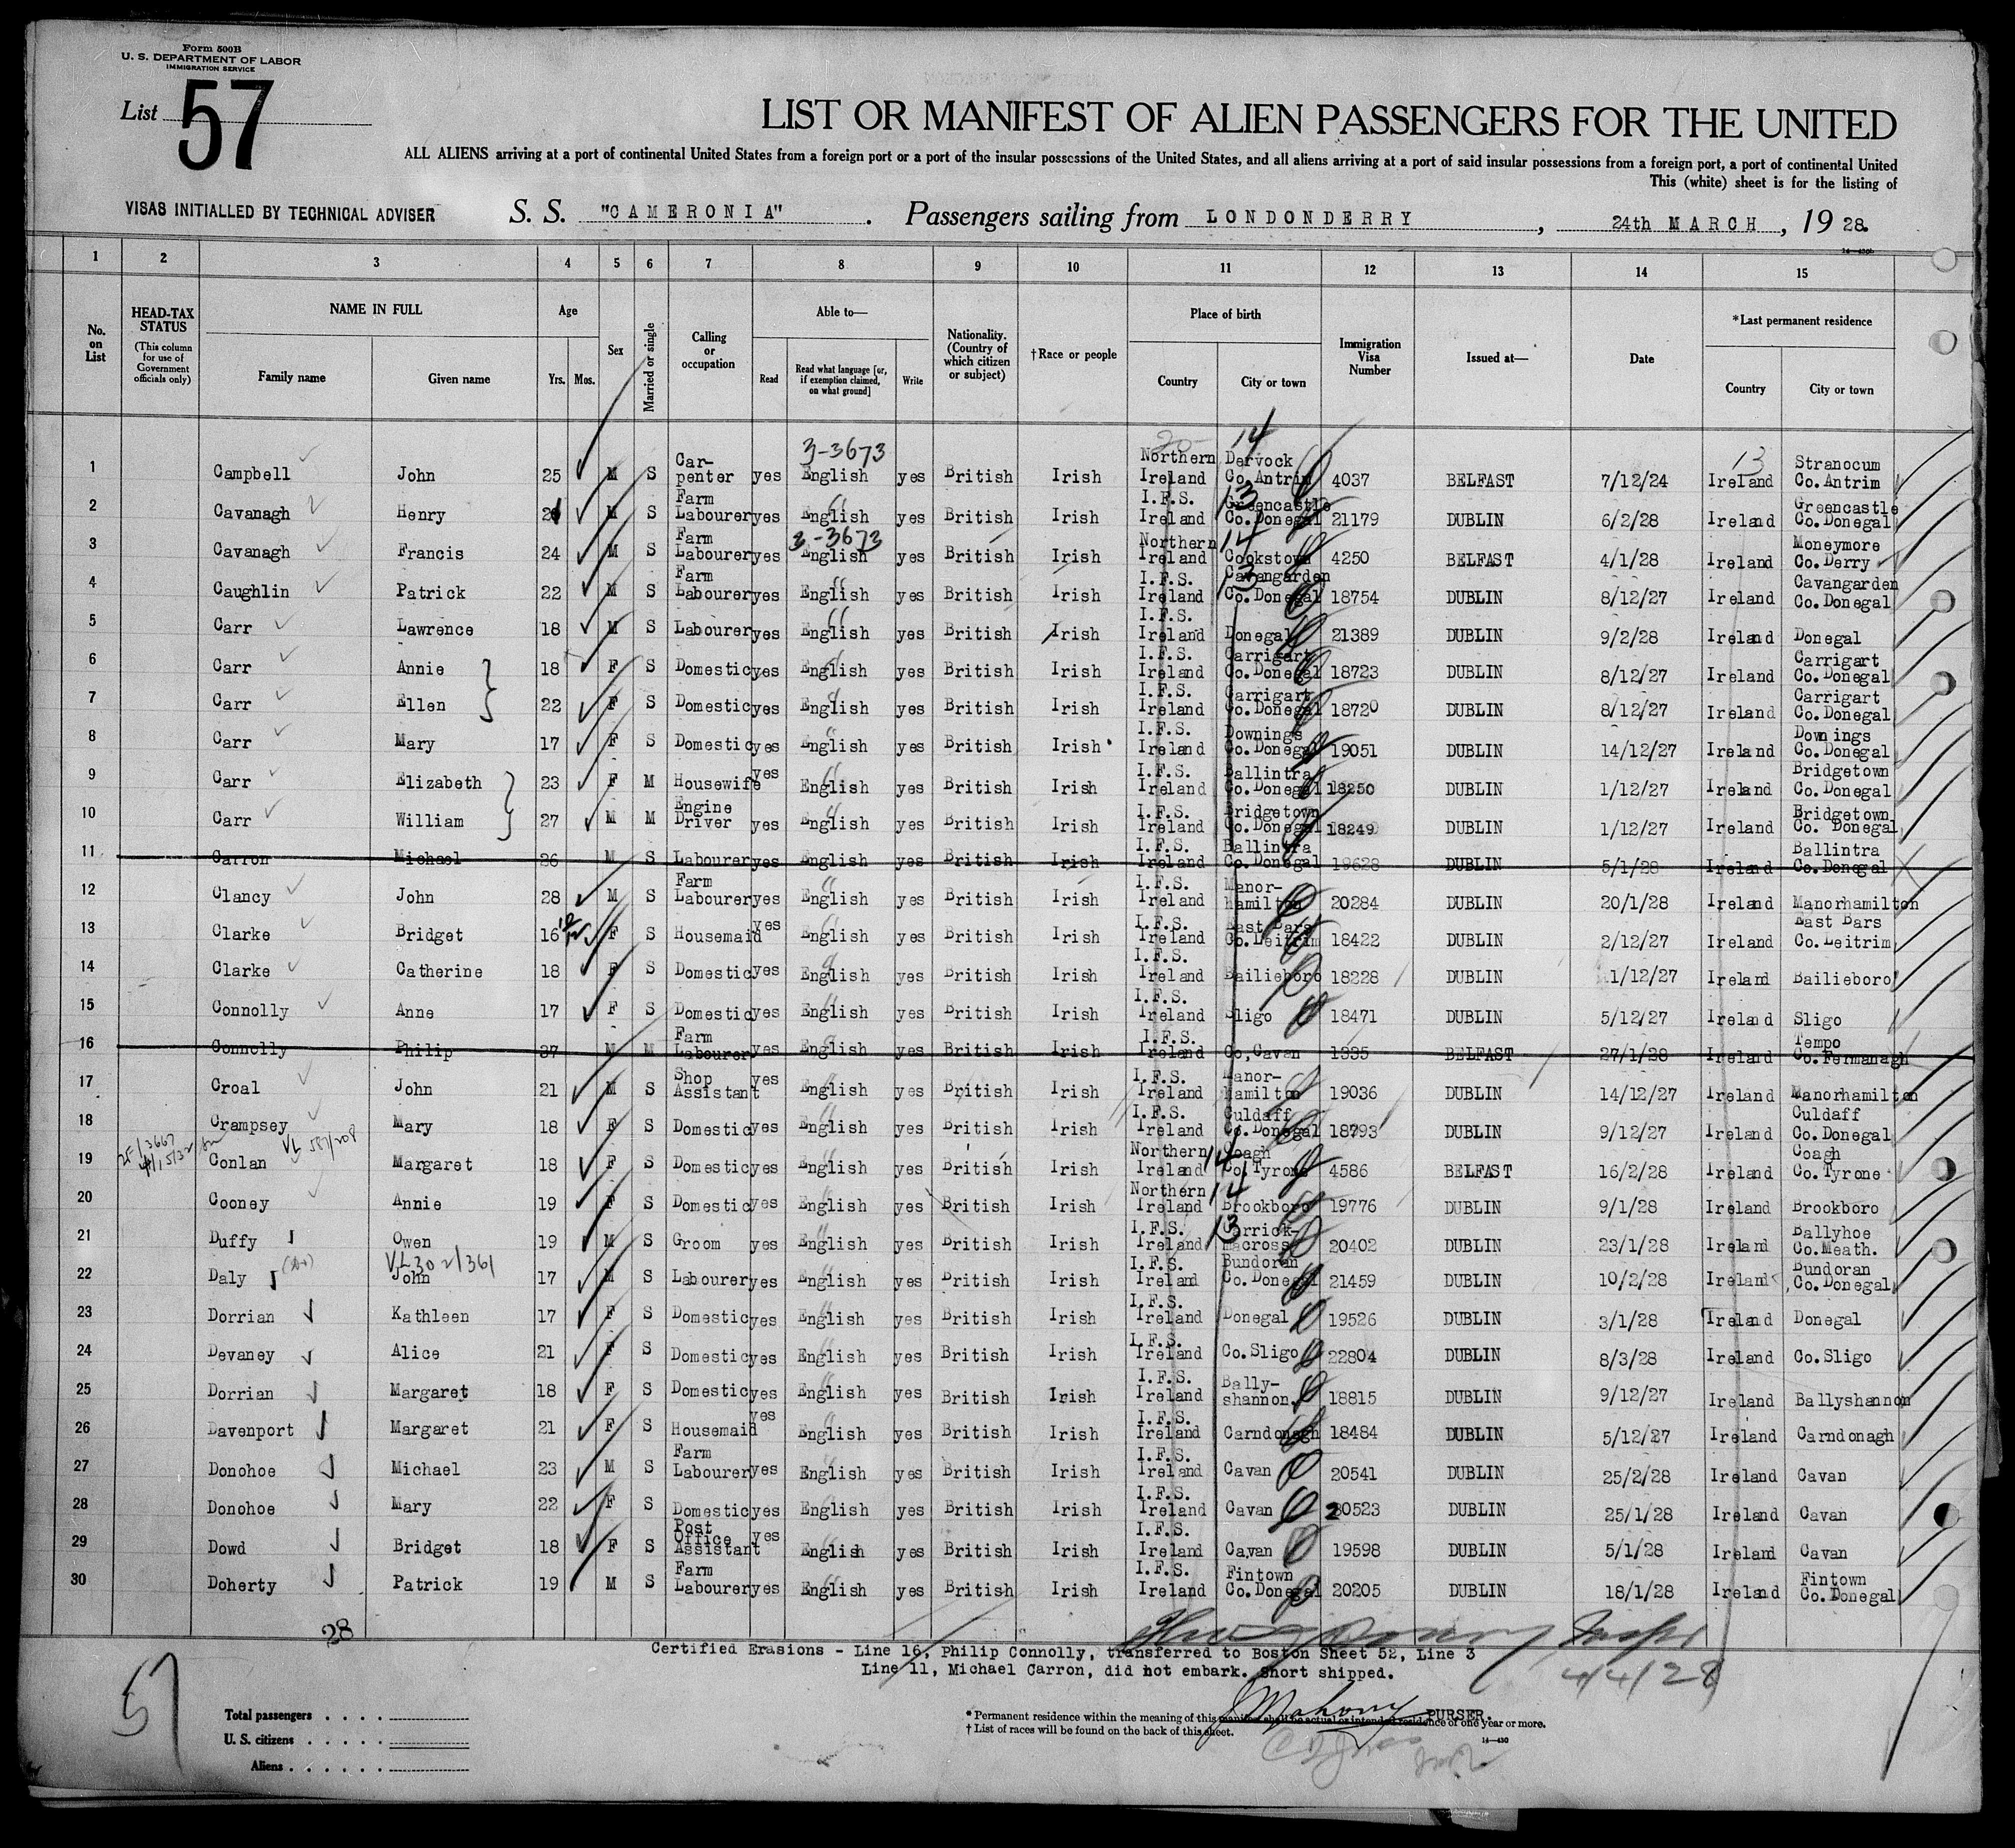 Form 500B
U. S. DEPARTMENT OF LABOR
IMMIGRATION SERVICE
List 57
LIST OR MANIFEST OF ALIEN PASSENGERS FOR THE UNITED
ALL ALIENS arriving at a port of continental United States from a foreign port or a port of the insular possessions of the United States, and all aliens arriving at a port of said insular possessions from a foreign port, a port of continental United
This (white) sheet is for the listing of
VISAS INITIALLED BY TECHNICAL ADVISER S. S. "CAMERONIA". Passengers sailing from LONDONDERRY, 24th MARCH, 1928.
1 2 3 4 5 6 7 8 9 10 11 12 13 14 15
No. on List HEAD-TAX STATUS (This column for use of Government officials only) NAME IN FULL Family name Given name Age Yrs. Mos. Sex Married or single Calling or occupation Able to— Read Read what language [or, if exemption claimed, on what ground] Write Nationality. (Country of which citizen or subject) †Race or people Place of birth Country City or town Immigration Visa Number Issued at— Date *Last permanent residence Country City or town
3-3673 20 14 13
1 Campbell John 25 M S Carpenter yes English yes British Irish Northern Ireland Dervock Co. Antrim 4037 BELFAST 7/12/24 Ireland Stranocum Co. Antrim
2 Cavanagh Henry M S Farm Labourer yes English yes British Irish I.F.S. Ireland 13 Greencastle Co. Donegal 21179 DUBLIN 6/2/28 Ireland Greencastle Co. Donegal
3 Cavanagh Francis 24 M S Farm Labourer yes 3-3673 English yes British Irish Northern Ireland 14 Cookstown 4250 BELFAST 4/1/28 Ireland Moneymore Co. Derry
4 Caughlin Patrick 22 M S Farm Labourer yes English yes British Irish I.F.S. Ireland 13 Cavangarden Co. Donegal 18754 DUBLIN 8/12/27 Ireland Cavangarden Co. Donegal
5 Carr Lawrence 18 M S Labourer yes English yes British Irish I.F.S. Ireland Donegal 21389 DUBLIN 9/2/28 Ireland Donegal
6 Carr Annie 18 F S Domestic yes English yes British Irish I.F.S. Ireland Carrigart Co. Donegal 18723 DUBLIN 8/12/27 Ireland Carrigart Co. Donegal
7 Carr Ellen 22 F S Domestic yes English yes British Irish I.F.S. Ireland Carrigart Co. Donegal 18720 DUBLIN 8/12/27 Ireland Carrigart Co. Donegal
8 Carr Mary 17 F S Domestic yes English yes British Irish I.F.S. Ireland Downings Co. Donegal 19051 DUBLIN 14/12/27 Ireland Downings Co. Donegal
9 Carr Elizabeth 23 F M Housewife yes English yes British Irish I.F.S. Ireland Ballintra Co. Donegal 18250 DUBLIN 1/12/27 Ireland Bridgetown Co. Donegal
10 Carr William 27 M M Engine Driver yes English yes British Irish I.F.S. Ireland Bridgetown Co. Donegal 18249 DUBLIN 1/12/27 Ireland Bridgetown Co. Donegal
11 Carron Michael 26 M S Labourer yes English yes British Irish I.F.S. Ireland Ballintra Co. Donegal 19628 DUBLIN 5/1/28 Ireland Ballintra Co. Donegal
12 Clancy John 28 M S Farm Labourer yes English yes British Irish I.F.S. Ireland Manor-hamilton 20284 DUBLIN 20/1/28 Ireland Manorhamilton
13 Clarke Bridget 16 F S Housemaid yes English yes British Irish I.F.S. Ireland East Bars Co. Leitrim 18422 DUBLIN 2/12/27 Ireland East Bars Co. Leitrim
14 Clarke Catherine 18 F S Domestic yes English yes British Irish I.F.S. Ireland Bailieboro 18228 DUBLIN 1/12/27 Ireland Bailieboro
15 Connolly Anne 17 F S Domestic yes English yes British Irish I.F.S. Ireland Sligo 18471 DUBLIN 5/12/27 Ireland Sligo
16 Connolly Philip 37 M M Farm Labourer yes English yes British Irish I.F.S. Ireland Co. Cavan 1335 BELFAST 27/1/28 Ireland Tempo Co. Fermanagh
17 Croal John 21 M S Shop Assistant yes English yes British Irish I.F.S. Ireland Manor-hamilton 19036 DUBLIN 14/12/27 Ireland Manorhamilton
18 Crampsey Mary 18 F S Domestic yes English yes British Irish I.F.S. Ireland Culdaff Co. Donegal 18793 DUBLIN 9/12/27 Ireland Culdaff Co. Donegal
19 Conlan Margaret 18 F S Domestic yes English yes British Irish Northern Ireland 14 Coagh Co. Tyrone 4586 BELFAST 16/2/28 Ireland Coagh Co. Tyrone
20 Cooney Annie 19 F S Domestic yes English yes British Irish Northern Ireland 14 Brookboro 19776 DUBLIN 9/1/28 Ireland Brookboro
21 Duffy Owen 19 M S Groom yes English yes British Irish I.F.S. Ireland 13 Carrick-macross 20402 DUBLIN 23/1/28 Ireland Ballyhoe Co. Meath.
VL 302/361
22 Daly John 17 M S Labourer yes English yes British Irish I.F.S. Ireland Bundoran Co. Donegal 21459 DUBLIN 10/2/28 Ireland Bundoran Co. Donegal
23 Dorrian Kathleen 17 F S Domestic yes English yes British Irish I.F.S. Ireland Donegal 19526 DUBLIN 3/1/28 Ireland Donegal
24 Devaney Alice 21 F S Domestic yes English yes British Irish I.F.S. Ireland Co. Sligo 22804 DUBLIN 8/3/28 Ireland Co. Sligo
25 Dorrian Margaret 18 F S Domestic yes English yes British Irish I.F.S. Ireland Bally-shannon. 18815 DUBLIN 9/12/27 Ireland Ballyshannon
26 Davenport Margaret 21 F S Housemaid yes English yes British Irish I.F.S. Ireland Carndonagh 18484 DUBLIN 5/12/27 Ireland Carndonagh
27 Donohoe Michael 23 M S Farm Labourer yes English yes British Irish I.F.S. Ireland Cavan 20541 DUBLIN 25/2/28 Ireland Cavan
28 Donohoe Mary 22 F S Domestic yes English yes British Irish I.F.S. Ireland Cavan 20523 DUBLIN 25/1/28 Ireland Cavan
29 Dowd Bridget 18 F S Post Office Assistant yes English yes British Irish I.F.S. Ireland Cavan 19598 DUBLIN 5/1/28 Ireland Cavan
30 Doherty Patrick 19 M S Farm Labourer yes English yes British Irish I.F.S. Ireland Fintown Co. Donegal 20205 DUBLIN 18/1/28 Ireland Fintown Co. Donegal
28
Certified Erasions - Line 16, Philip Connolly, transferred to Boston Sheet 52, Line 3
Line 11, Michael Carron, did not embark. Short shipped.
4/4/28
57
Total passengers
U. S. citizens
Aliens
PURSER.
* Permanent residence within the meaning of this manifest shall be actual or intended residence of one year or more.
† List of races will be found on the back of this sheet.
14—430